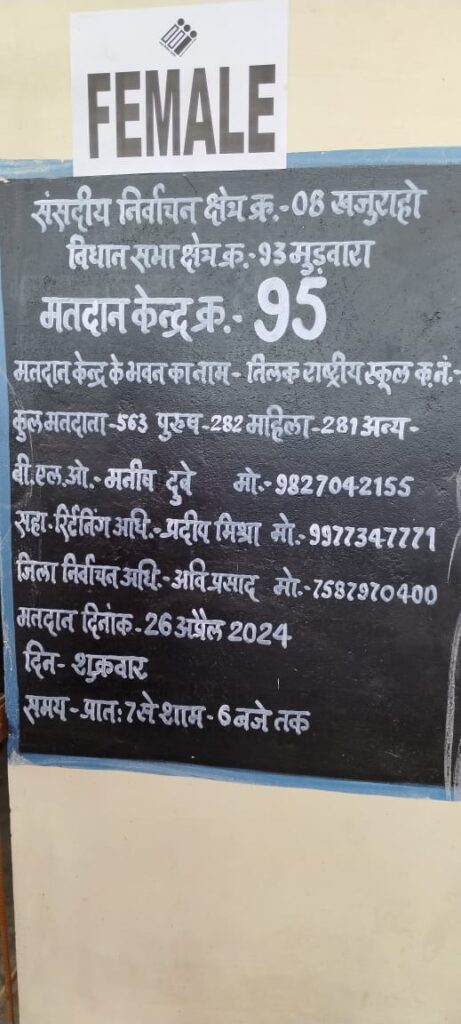 FEMALE
संसदीय निर्वाचन क्षेत्र क्र.-08 खजुराहो
विधान सभा क्षेत्र क्र.-93 मुड़वारा
मतदान केन्द्र क्र.- 95
मतदान केन्द्र के भवन का नाम - तिलक राष्ट्रीय स्कूल क.नं.-
कुल मतदाता-563 पुरुष-282 महिला-281 अन्य-
बी.एल.ओ.- मनीष दुबे मो.-9827042155
सहा.रिर्टनिंग अधि.-प्रदीप मिश्रा मो.-9977347771
जिला निर्वाचन अधि.-अवि प्रसाद मो.-7587970400
मतदान दिनांक-26 अप्रैल 2024
दिन- शुक्रवार
समय-प्रात:7 से शाम-6 बजे तक